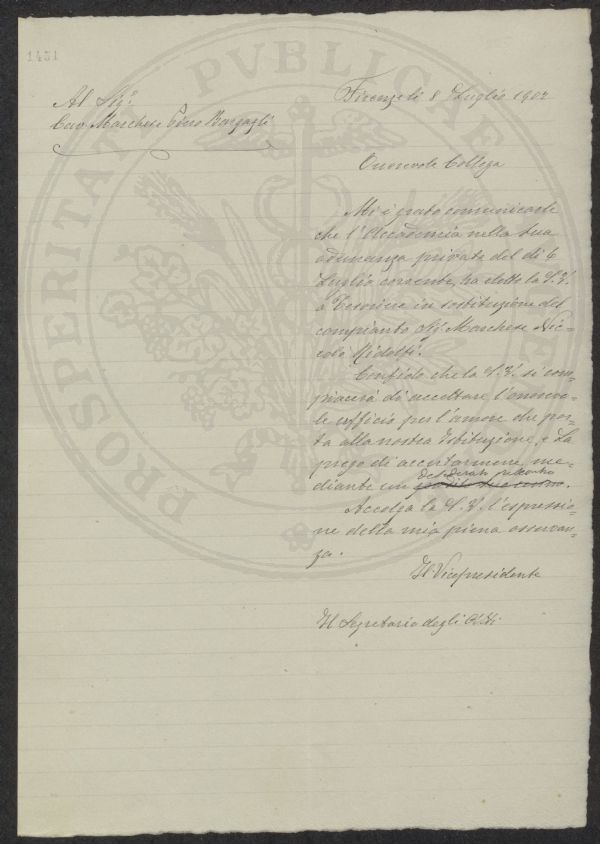 1431
PROSPERITATI PUBLICAE
Firenze li 8 Luglio 1902
Al Sig.r
Cav. Marchese Piero Bargagli
Onorevole Collega
Mi è grato comunicarle
che l'Accademia nella sua
adunanza privata del dì 6
Luglio corrente, ha eletto la S.V.
a Tesoriere in sostituzione del
compianto Sig. Marchese Nic=
colò Ridolfi.
Confido che la S.V. si com=
piacerà di accettare l'onorevo=
le ufficio per l'amore che por=
ta alla nostra Istituzione, e La
prego di accertarmene me=
diante un desiderato riscontro
Accolga la S.V. l'espressio=
ne della mia piena osservan=
za.
Il Vicepresidente
Il Segretario degli Atti